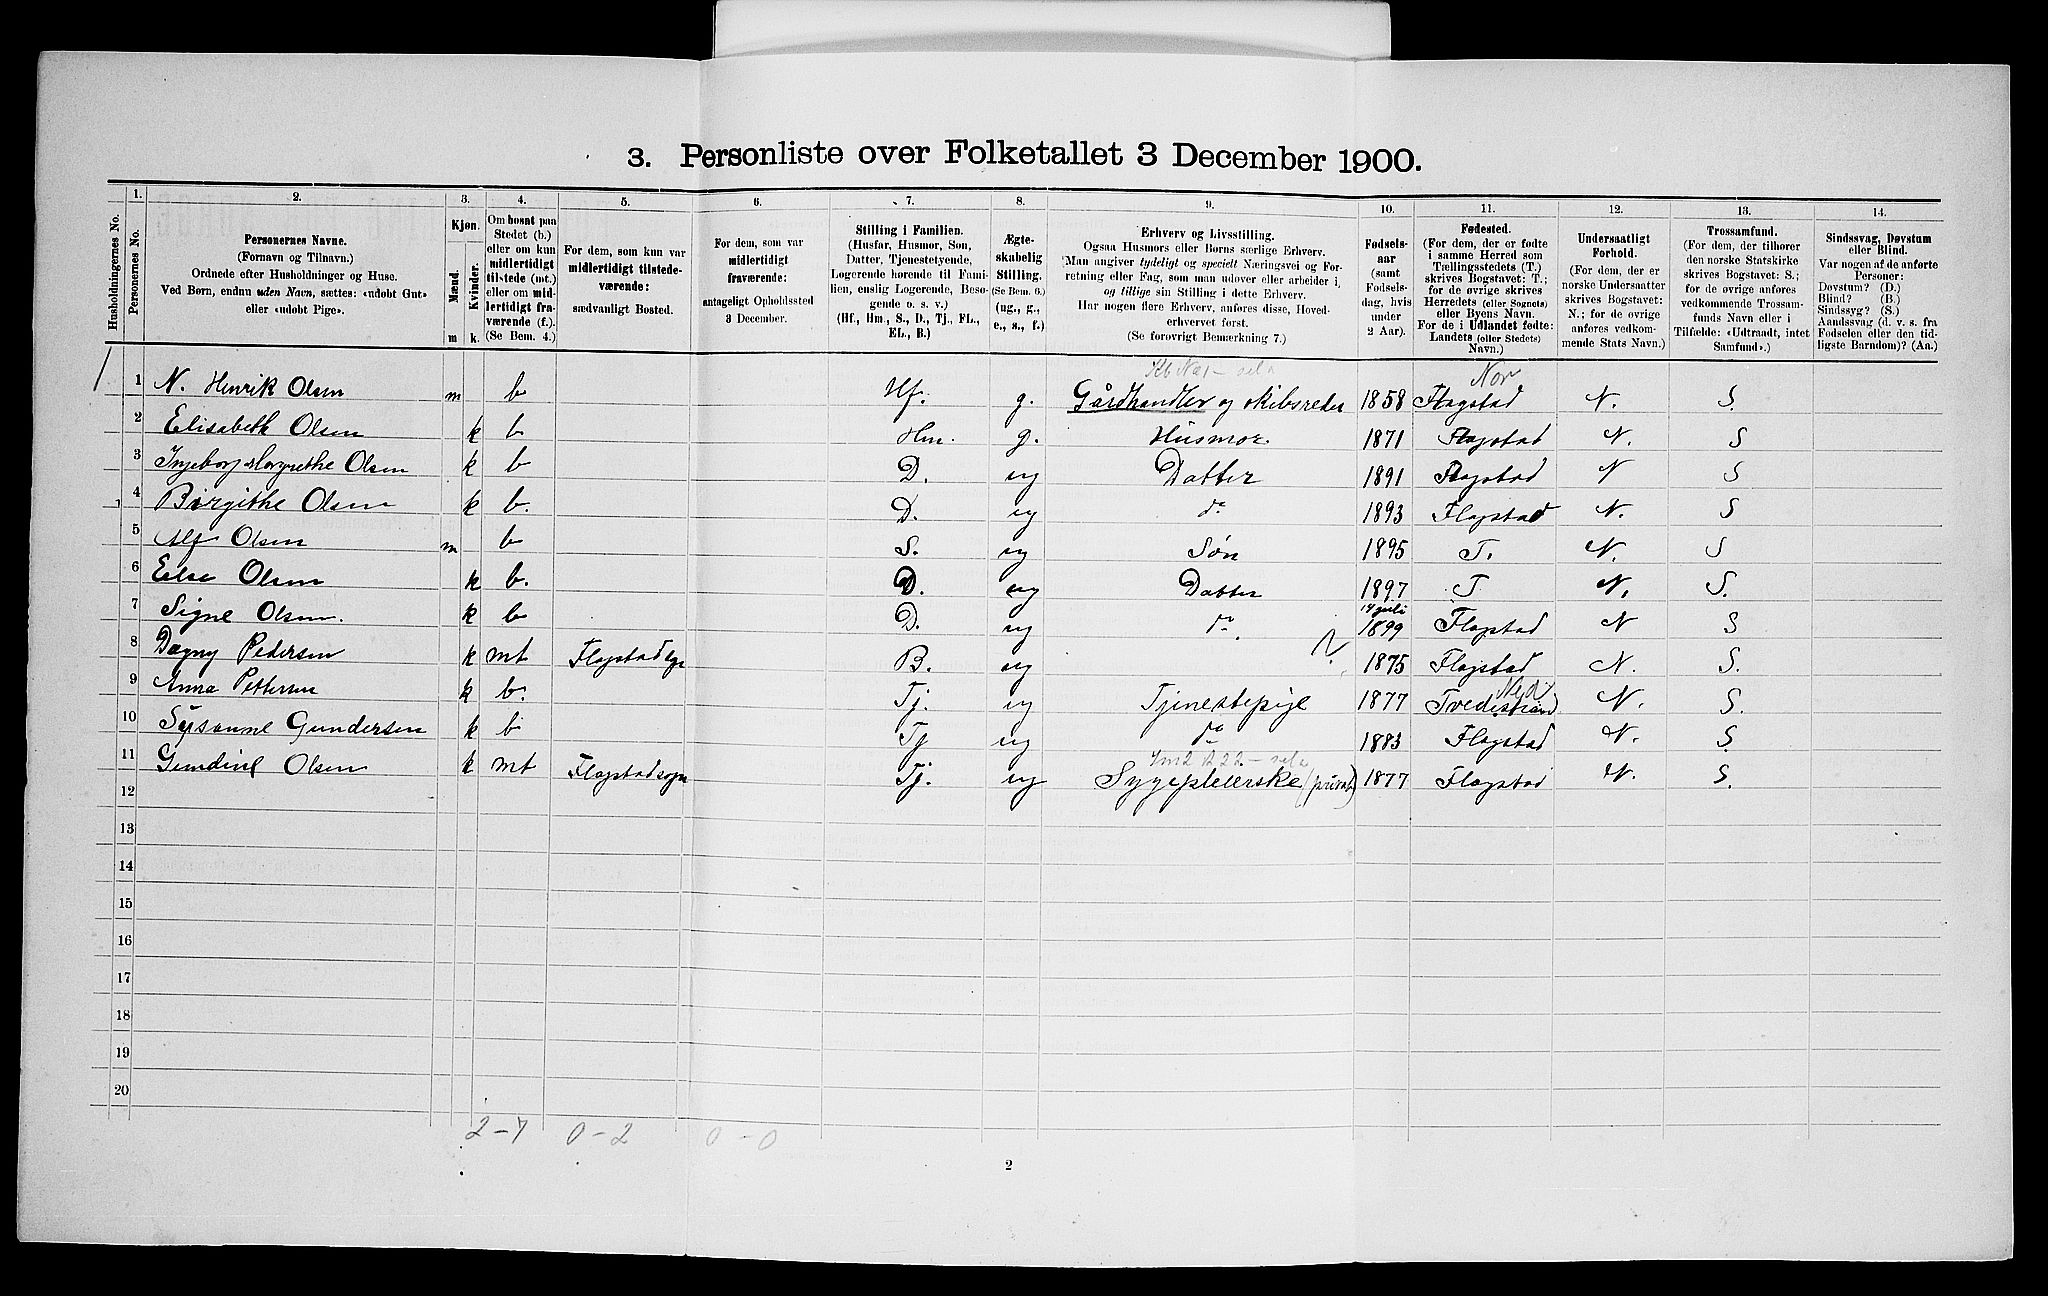 3. Personliste over Folketallet 3 December 1900.
Husholdningernes No.
1.
Personernes No.
2.
Personernes Navne.
(Fornavn og Tilnavn.)
Ordnede efter Husholdninger og Huse.
Ved Børn, endnu uden Navn, sættes: «udøbt Gut»
eller «udøbt Pige».
3.
Kjøn.
Mænd.
Kvinder.
m k.
4.
Om bosat paa
Stedet (b.)
eller om kun
midlertidigt
tilstede (mt.)
eller om mid-
lertidigt fra-
værende (f.).
(Se Bem. 4.)
5.
For dem, som kun var
midlertidigt tilstede-
værende:
sædvanligt Bosted.
6.
For dem, som var
midlertidigt
fraværende:
antageligt Opholdssted
3 December.
7.
Stilling i Familien.
(Husfar, Husmor, Søn,
Datter, Tjenestetyende,
Logerende hørende til Fami-
lien, enslig Logerende, Besø-
gende o. s. v.)
(Hf., Hm., S., D., Tj., FL.,
EL., B.)
8.
Ægte-
skabelig
Stilling.
(Se Bem. 6.)
(ug., g.,
e., s., f.)
9.
Erhverv og Livsstilling.
Ogsaa Husmors eller Børns særlige Erhverv.
Man angiver tydeligt og specielt Næringsvei og For-
retning eller Fag, som man udøver eller arbeider i,
og tillige sin Stilling i dette Erhverv.
Har nogen flere Erhverv, anføres disse, Hoved-
erhvervet først.
(Se forøvrigt Bemærkning 7.)
10.
Fødsels-
aar
(samt
Fødsels-
dag, hvis
under
2 Aar).
11.
Fødested.
(For dem, der er fødte
i samme Herred som
Tællingsstedets (T.)
skrives Bogstavet: T.;
for de øvrige skrives
Herredets (eller Sognets)
eller Byens Navn.
For de i Udlandet fødte:
Landets (eller Stedets)
Navn.)
12.
Undersaatligt
Forhold.
(For dem, der er
norske Undersaatter
skrives Bogstavet:
N.; for de øvrige
anføres vedkom-
mende Stats Navn.)
13.
Trossamfund.
(For dem, der tilhører
den norske Statskirke
skrives Bogstavet: S.;
for de øvrige anføres
vedkommende Trossam-
funds Navn eller i
Tilfælde: «Udtraadt, intet
Samfund».)
14.
Sindssvag, Døvstum
eller Blind.
Var nogen af de anførte
Personer:
Døvstum? (D.)
Blind? (B.)
Sindssyg? (S.)
Aandssvag (d. v. s. fra
Fødselen eller den tid-
ligste Barndom)? (Aa.)
Nor
1 1 N. Henrik Olsen m b Hf. g. Gårdhandler og skibsreder 1858 Flagstad N. S.
2 Elisabeth Olsen k b Hm. g. Husmor. 1871 Flagstad N. S
3 Ingeborg Margrethe Olsen k b D. ug Datter 1891 Flagstad N S
4 Birgithe Olsen k b. D. ug do 1893 Flagstad N. S
5 Alf Olsen m b S. ug Søn 1895 T. N. S
6 Else Olsen k b. D. ug Datter 1897 T N. S.
7 Signe Olsen. k b D. ug do 14 juli 1899 Flagstad N S
8 Dagny Pedersen k mt B. ug ? 1875 Flagstad N. S.
9 Anna Pettersen k b. Tj. ug Tjenestepige 1877 Tvedestrand N. S.
10 Sysanne Gundersen k b Tj ug do 1883 Flagstad N. S.
11 Gundine Olsen k mt Flagstadsogn Tj. ug Sygepleierske (privat) 1877 Flagstad N. S.
12
13
14
15
16
17
18
19
20
2 - 7 0 - 2 0 - 0
2